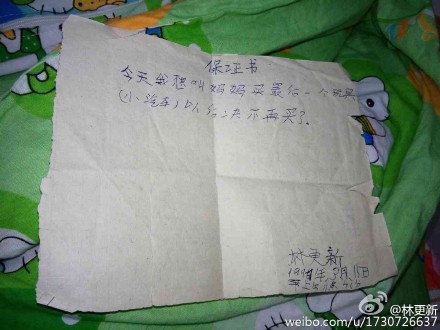 保证书
今天我想叫妈妈买最后一个玩具
(小汽车)以后决不再买了。
林更新
年3月11日
@林更新
weibo.com/u/1730726637